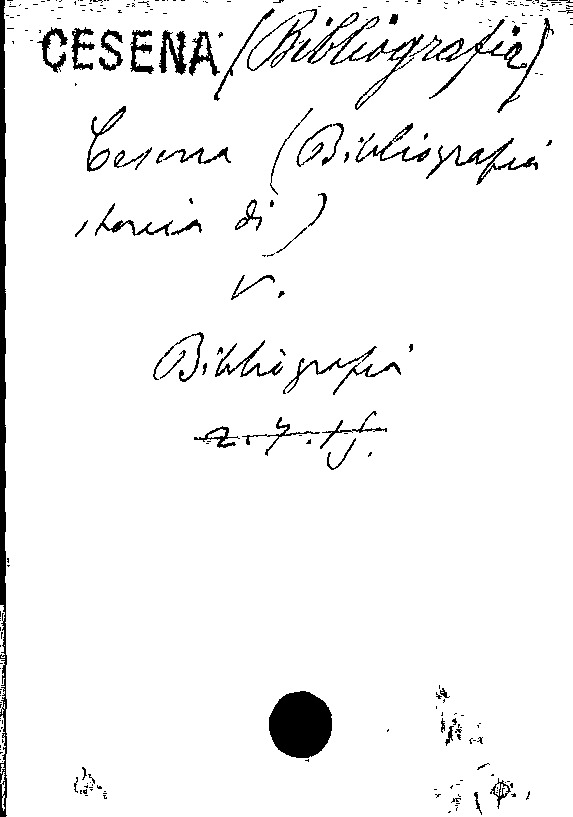 CESENA (Bibliografia)
Cesena (Bibliografia
storica di)
V.
Bibliografia
2.7.15.